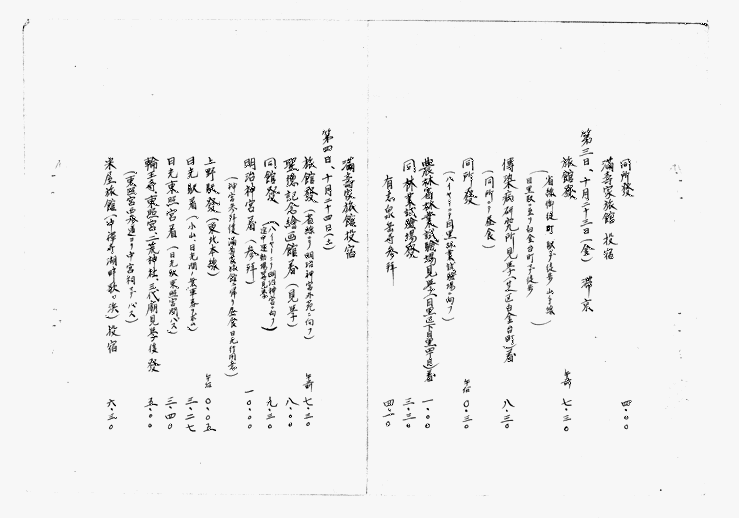 同所發 四.〇〇
満壽家旅館 投宿
第三日、十月二十三日(金) 滞京
旅館發 午前 七.三〇
(省線御徒町駅マデ徒歩 山手線
目黒駅ヨリ白金台町マデ徒歩)
傳染病研究所見学(芝区白金台町)着 八.三〇
(同所ニテ昼食)
同所發 午后 〇.三〇
(ハイヤーニテ目黒林業試験場ヘ向フ)
農林省林業試験場見学(目黒区下目黒四丁目)着 一.〇〇
同林業試験場發 三.三〇
有志泉岳寺参拝 四.二〇
満壽家旅館投宿
第四日、十月二十四日(土)
旅館發(省線ヨリ明治神宮外苑ニ向フ) 午前 七.三〇
聖徳記念絵画館着(見学) 八.〇〇
同館發(ハイヤーニテ明治神宮ニ向フ 途中運動場等見学) 九.三〇
明治神宮着(参拝) 一〇.〇〇
(神宮参拝後満壽家旅館ニ帰リ昼食 日光行用意)
上野駅發(東北本線) 午后 〇.〇五
日光駅着(小山、日光間) 三.二七
日光東照宮着(日光駅東照宮間バス) 三.四〇
輪王寺、東照宮、二荒神社、三代廟見学後發 五.〇〇
(東照宮西参道ヨリ中宮祠マデバス)
米屋旅館(中禅寺湖畔歌ヶ浜)投宿 六.三〇